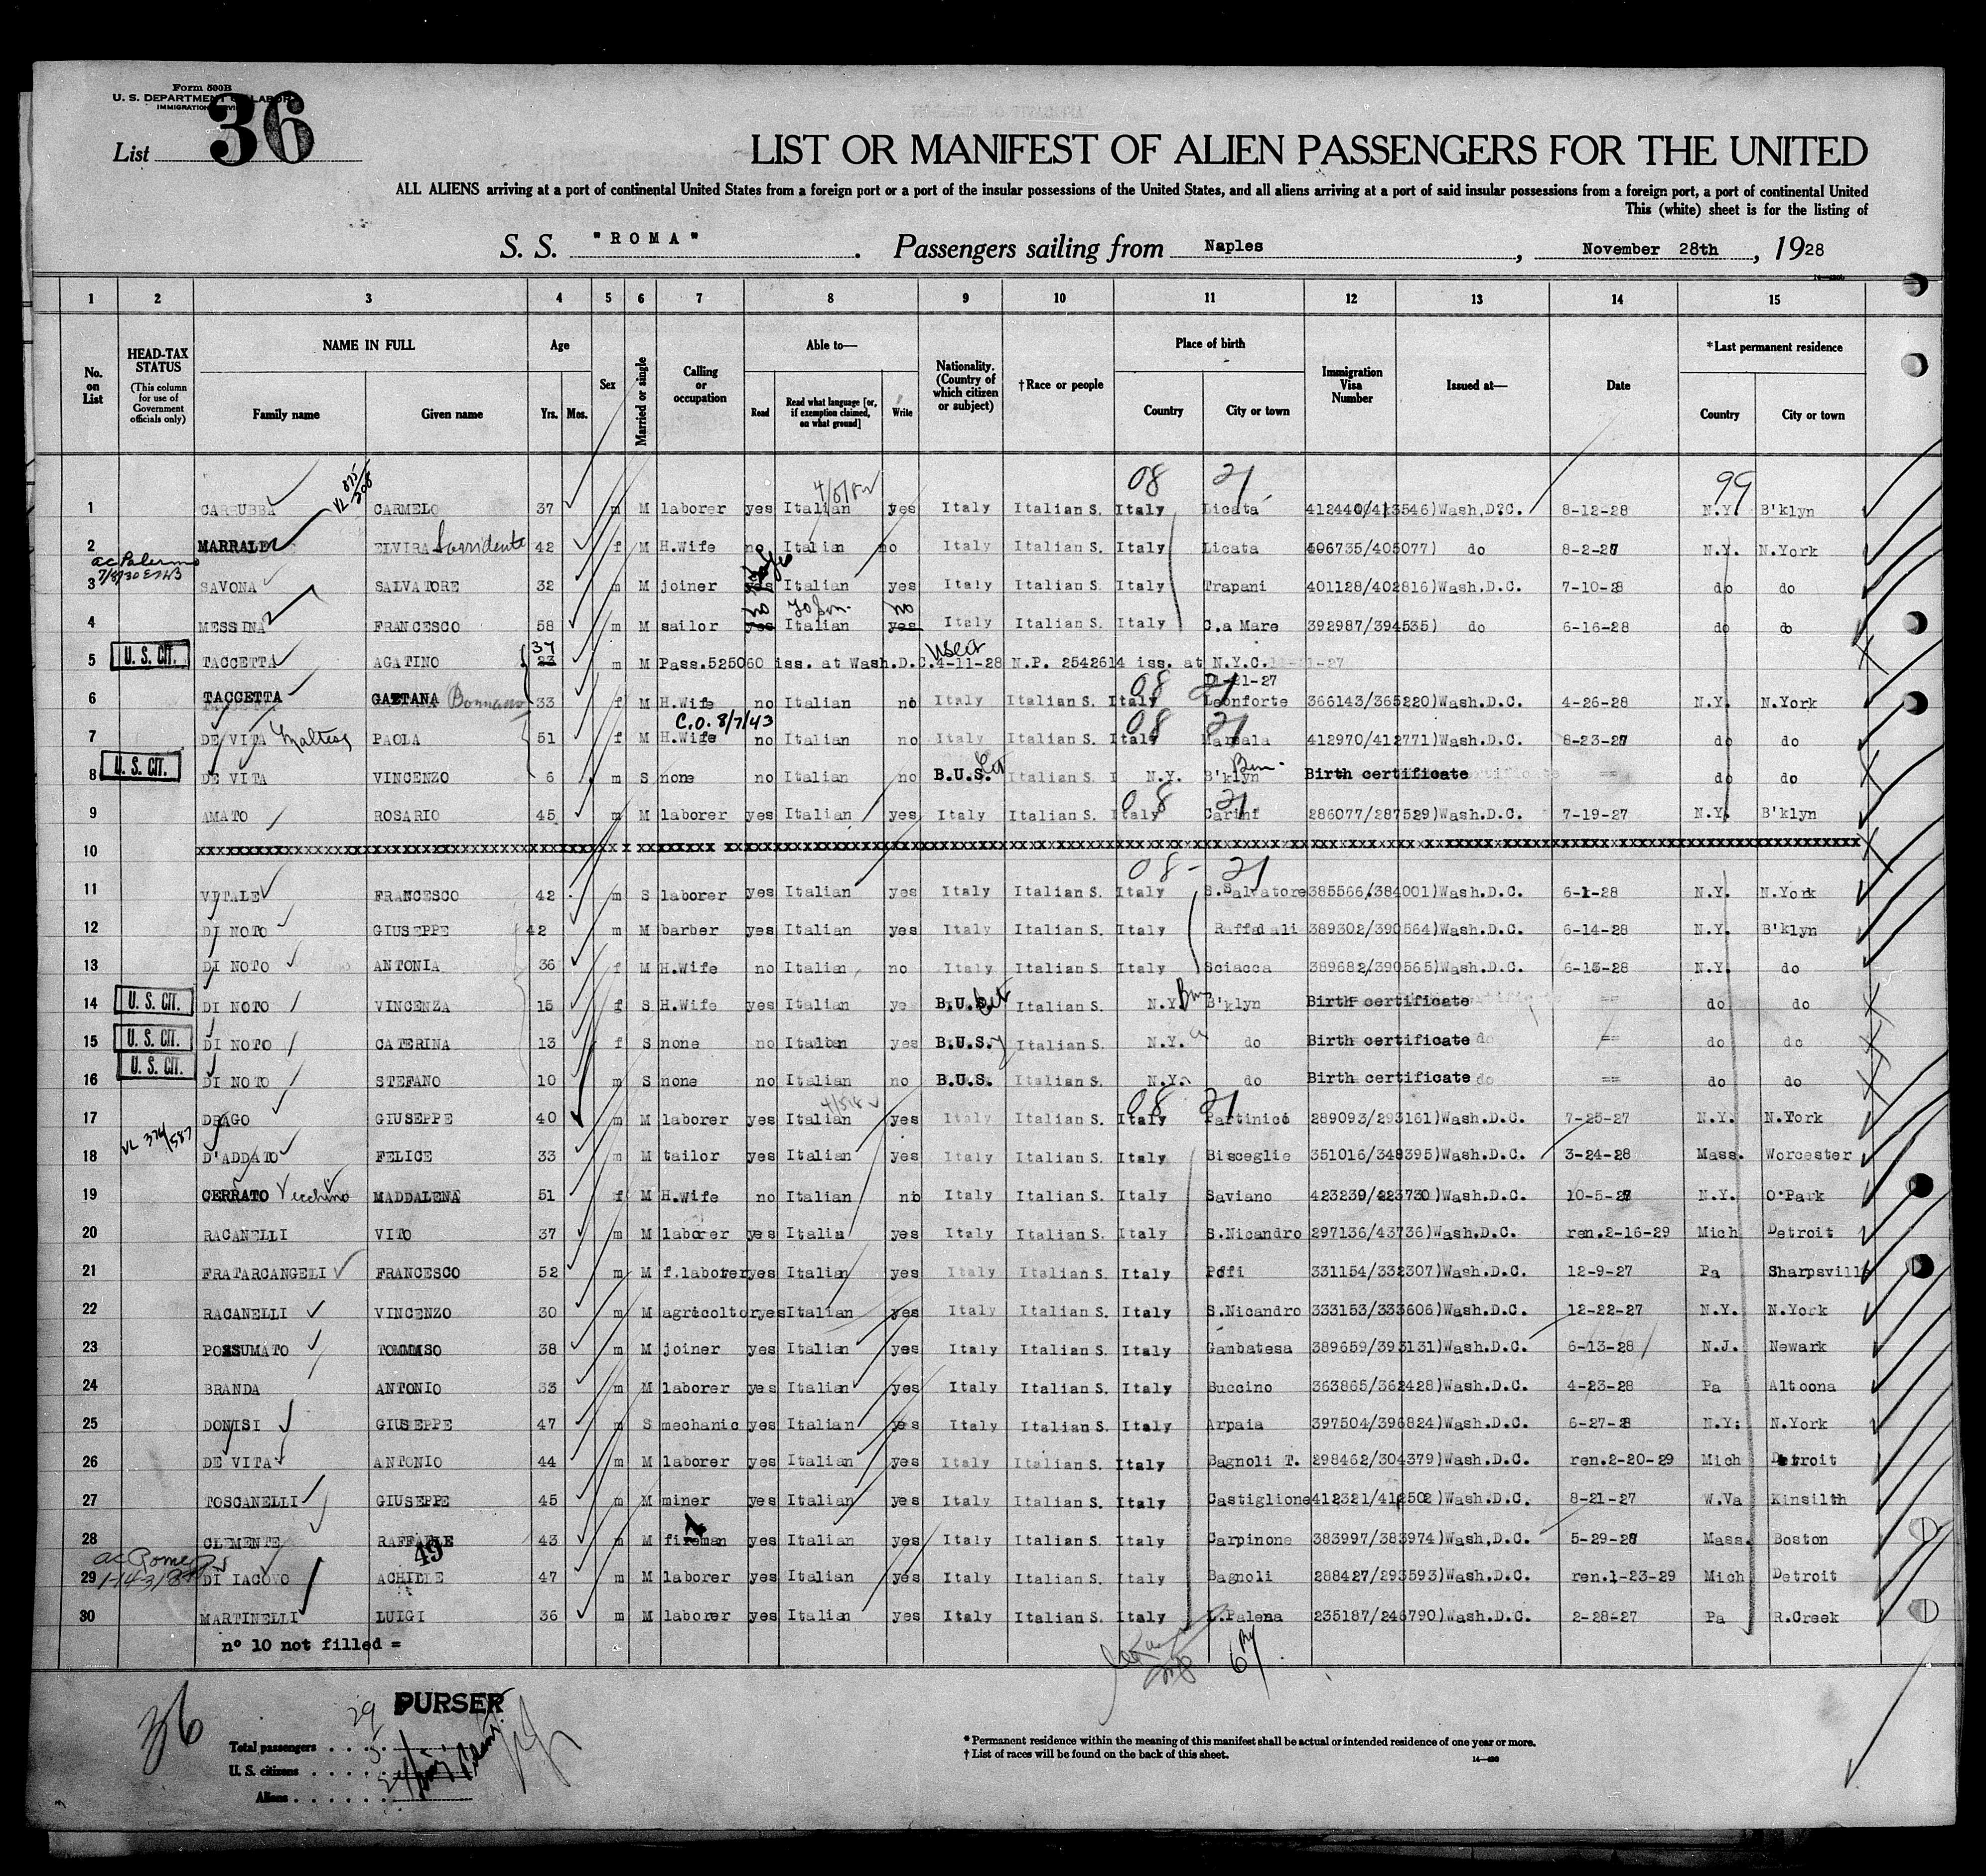 Form 500B
U. S. DEPARTMENT OF LABOR
IMMIGRATION SERVICE
List 36
LIST OR MANIFEST OF ALIEN PASSENGERS FOR THE UNITED
ALL ALIENS arriving at a port of continental United States from a foreign port or a port of the insular possessions of the United States, and all aliens arriving at a port of said insular possessions from a foreign port, a port of continental United
This (white) sheet is for the listing of
S. S. "ROMA". Passengers sailing from Naples, November 28th, 1928
1 2 3 4 5 6 7 8 9 10 11 12 13 14 15
No. on List HEAD-TAX STATUS (This column for use of Government officials only) NAME IN FULL Family name Given name Age Yrs. Mos. Sex Married or single Calling or occupation Able to— Read Read what language [or, if exemption claimed, on what ground] Write Nationality. (Country of which citizen or subject) †Race or people Place of birth Country City or town Immigration Visa Number Issued at— Date *Last permanent residence Country City or town
08 21 99
1 CARRUBBA CARMELO 37 m M laborer yes Italian yes Italy Italian S. Italy Licata 412440/413546) Wash.D.C. 8-12-28 N.Y. B'klyn
2 MARRALE ELVIRA Sorridente 42 f M H.Wife no Italian no Italy Italian S. Italy Licata 406735/405077) do 8-2-28 N.Y. N.York
ac Palermo
3 SAVONA SALVATORE 32 m M joiner yes Italian yes Italy Italian S. Italy Trapani 401128/402816) Wash.D.C. 7-10-28 do do
no no
4 MESSINA FRANCESCO 58 m M sailor yes Italian yes Italy Italian S. Italy C.a Mare 392987/394535) do 6-16-28 do do
37
5 U. S. CIT. TACCETTA AGATINO 23 m M Pass.525060 iss. at Wash.D.C.4-11-28 N.P. 2542614 iss. at N.Y.C.11-21-27
11-21-27
08 21
6 TACCETTA GAETANA Bonnano 33 f M H.Wife no Italian no Italy Italian S. Italy Leonforte 366143/365220) Wash.D.C. 4-26-28 N.Y. N.York
C.O. 8/7/43 08 21
7 DE VITA Maltese PAOLA 51 f M H.Wife no Italian no Italy Italian S. Italy Marsala 412970/412771) Wash.D.C. 8-23-28 do do
8 U. S. CIT. DE VITA VINCENZO 6 m S none no Italian no B.U.S. Italian S. N.Y. B'klyn Birth certificate == do do
08 21
9 AMATO ROSARIO 45 m M laborer yes Italian yes Italy Italian S. Italy Carini 286077/287529) Wash.D.C. 7-19-27 N.Y. B'klyn
10 xxxxxxxxxxxxxxxxxxxxxxxxxxxxxxxx
08 - 21
11 VITALE FRANCESCO 42 m S laborer yes Italian yes Italy Italian S. Italy S.Salvatore 385566/384001) Wash.D.C. 6-1-28 N.Y. N.York
12 DI NOTO GIUSEPPE 42 m M barber yes Italian yes Italy Italian S. Italy Raffadali 389302/390564) Wash.D.C. 6-14-28 N.Y. B'klyn
13 DI NOTO ANTONIA 36 f M H.Wife no Italian no Italy Italian S. Italy Sciacca 389682/390565) Wash.D.C. 6-15-28 N.Y. do
14 U. S. CIT. DI NOTO VINCENZA 15 f S H.Wife yes Italian yes B.U.S. Italian S. N.Y. B'klyn Birth certificate == do do
15 U. S. CIT. DI NOTO CATERINA 13 f S none no Italian yes B.U.S. Italian S. N.Y. do Birth certificate == do do
16 U. S. CIT. DI NOTO STEFANO 10 m S none no Italian no B.U.S. Italian S. N.Y. do Birth certificate == do do
08 21
17 DRAGO GIUSEPPE 40 m M laborer yes Italian yes Italy Italian S. Italy Partinico 289093/293161) Wash.D.C. 7-25-27 N.Y. N.York
18 D'ADDATO FELICE 33 m M tailor yes Italian yes Italy Italian S. Italy Bisceglie 351016/348395) Wash.D.C. 3-24-28 Mass. Worcester
19 CERRATO Vecchino MADDALENA 51 f M H.Wife no Italian no Italy Italian S. Italy Saviano 423239/423730) Wash.D.C. 10-5-28 N.Y. O'Park
20 RACANELLI VITO 37 m M laborer yes Italia yes Italy Italian S. Italy S.Nicandro 297136/43736) Wash.D.C. ren.2-16-29 Mich Detroit
21 FRATARCANGELI FRANCESCO 52 m M f.laborer yes Italian yes Italy Italian S. Italy Pofi 331154/332307) Wash.D.C. 12-9-27 Pa Sharpsville
22 RACANELLI VINCENZO 30 m M agricoltor yes Italian yes Italy Italian S. Italy S.Nicandro 333153/333606) Wash.D.C. 12-22-27 N.Y. N.York
23 POSSUMATO TOMMASO 38 m M joiner yes Italian yes Italy Italian S. Italy Gambatesa 389659/393131) Wash.D.C. 6-13-28 N.J. Newark
24 BRANDA ANTONIO 33 m M laborer yes Italian yes Italy Italian S. Italy Buccino 363865/362428) Wash.D.C. 4-23-28 Pa Altoona
25 DONISI GIUSEPPE 47 m S mechanic yes Italian yes Italy Italian S. Italy Arpaia 397504/396824) Wash.D.C. 6-27-28 N.Y. N.York
26 DE VITA ANTONIO 44 m M laborer yes Italian yes Italy Italian S. Italy Bagnoli T. 298462/304379) Wash.D.C. ren.2-20-29 Mich Detroit
27 TOSCANELLI GIUSEPPE 45 m M miner yes Italian yes Italy Italian S. Italy Castiglione 412321/412502) Wash.D.C. 8-21-27 W.Va Kinsilth
28 CLEMENTE RAFFAELE 43 m M fireman yes Italian yes Italy Italian S. Italy Carpinone 383997/383974) Wash.D.C. 5-29-28 Mass. Boston
ac Rome 49
29 DI IACOVO ACHILLE 47 m M laborer yes Italian yes Italy Italian S. Italy Bagnoli 288427/293593) Wash.D.C. ren.1-23-29 Mich Detroit
30 MARTINELLI LUIGI 36 m M laborer yes Italian yes Italy Italian S. Italy L.Palena 235187/246790) Wash.D.C. 2-28-27 Pa R.Creek
n° 10 not filled =
36
PURSER
Total passengers . . . . 29
U. S. citizens . . . . . 5
Aliens . . . . . . 24
* Permanent residence within the meaning of this manifest shall be actual or intended residence of one year or more.
† List of races will be found on the back of this sheet.